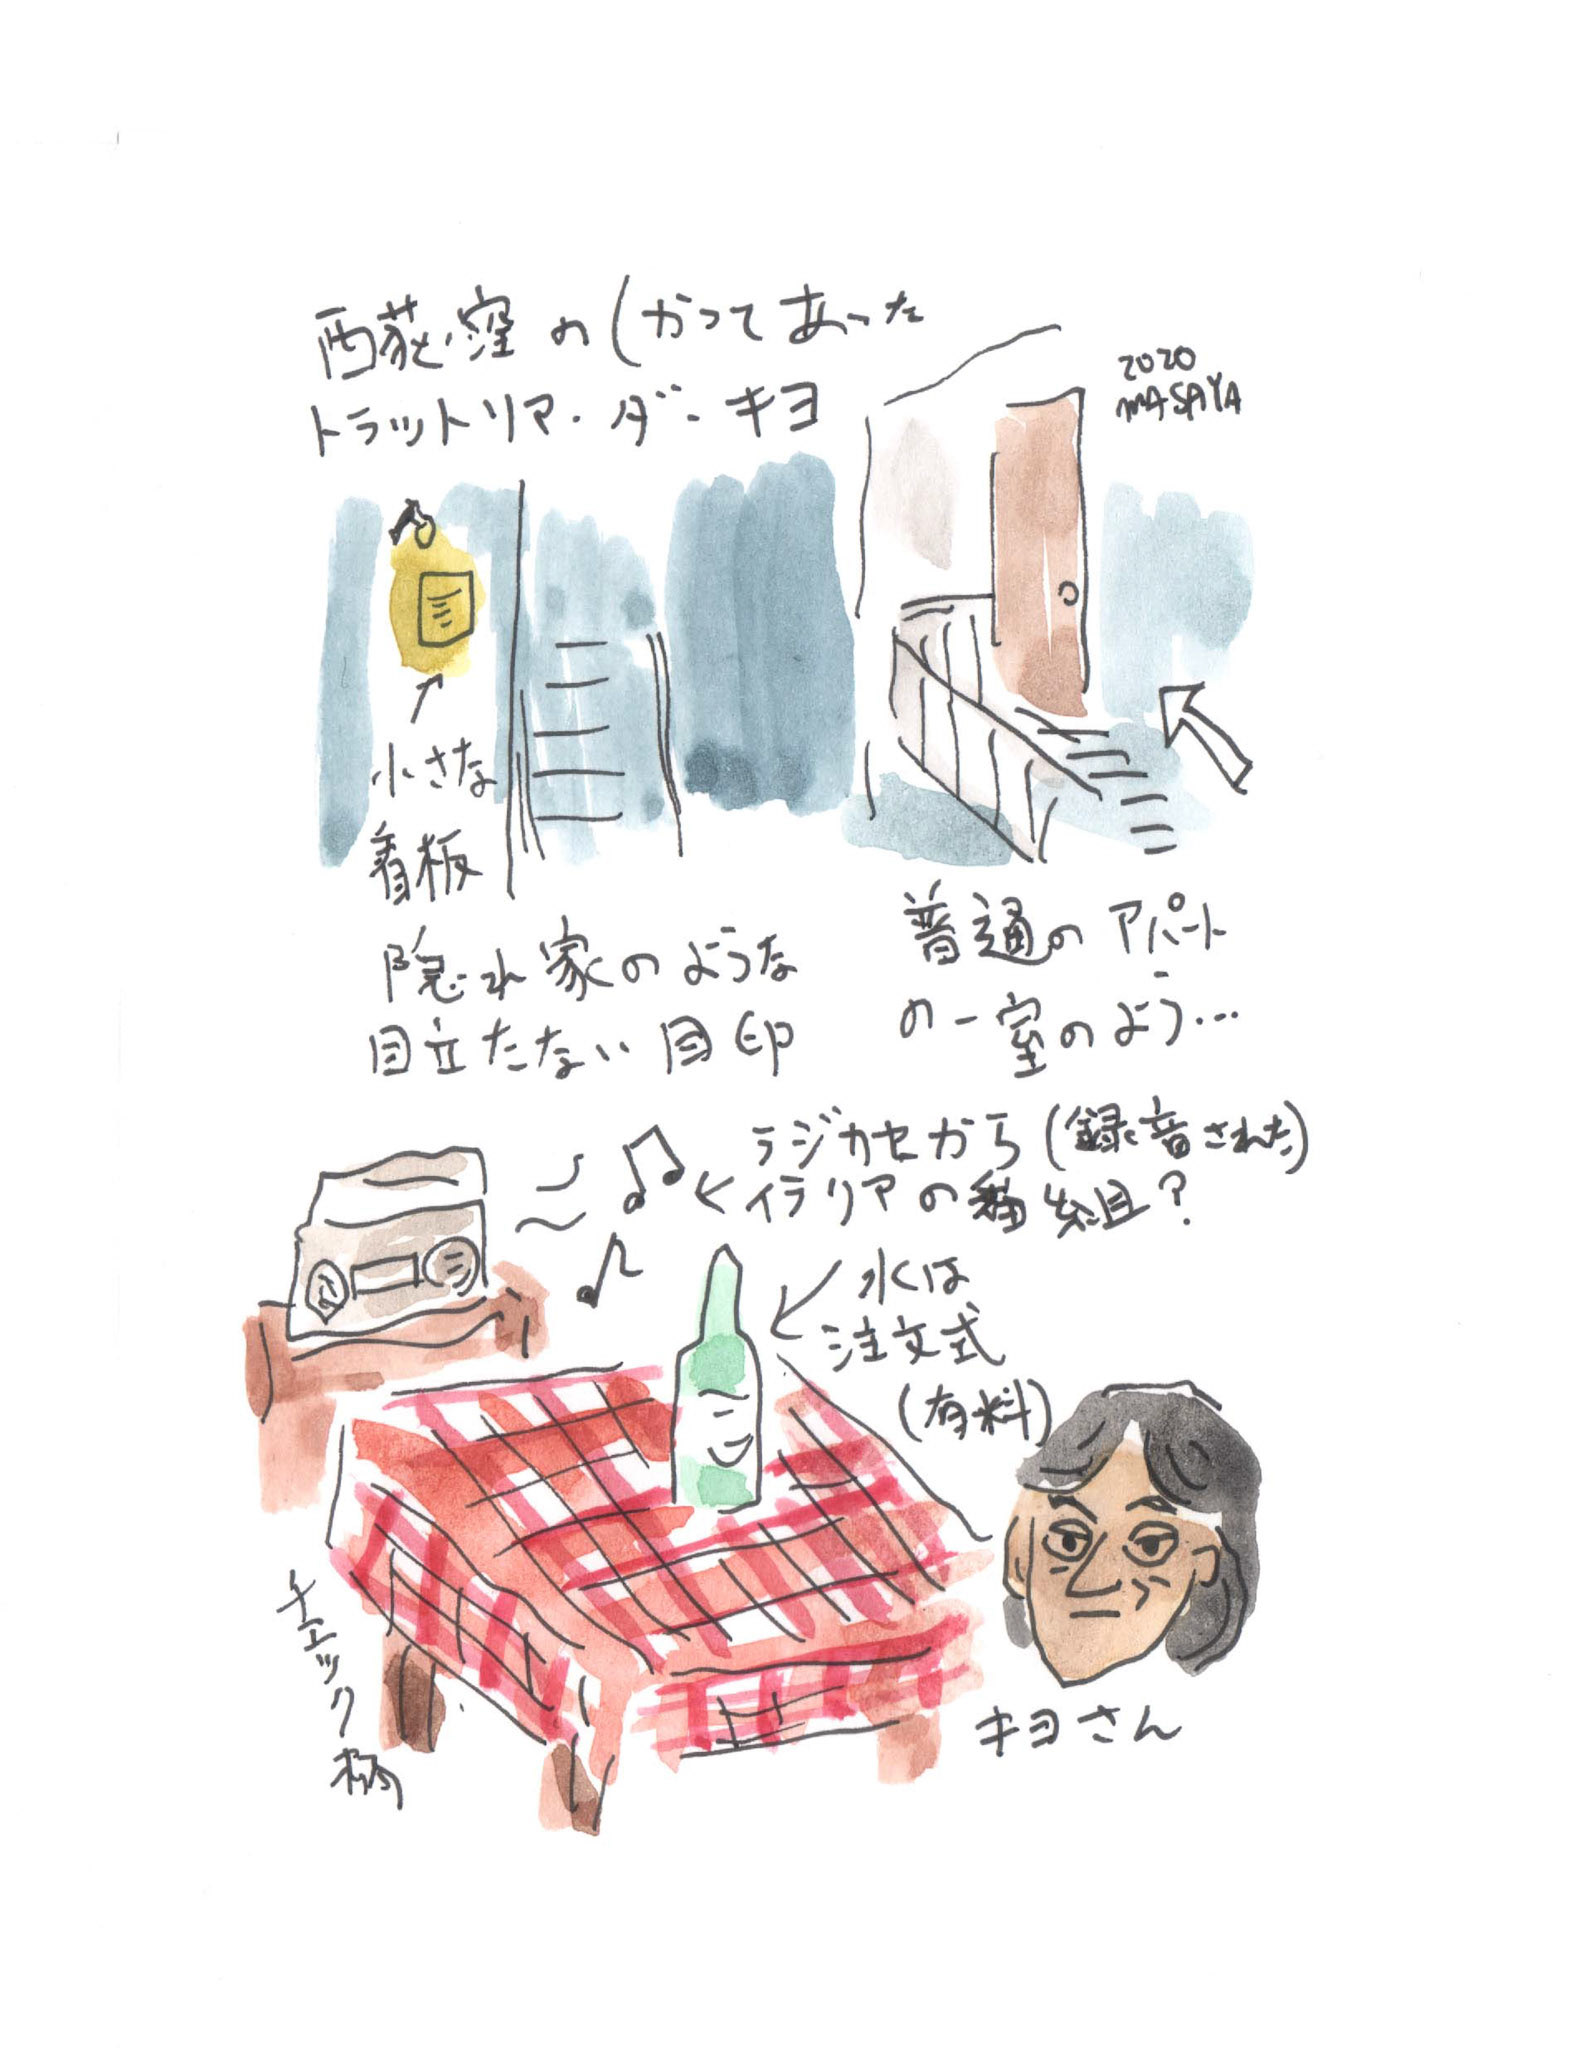 西荻窪の(かつてあった
トラットリア・ダ・キヨ
2020
MASAYA
小さな
看板
隠れ家のような
目立たない目印
普通のアパート
の一室のよう…
ラジカセから(録音された)
イタリアの番組?
水は
注文式
(有料)
チェック柄
キヨさん